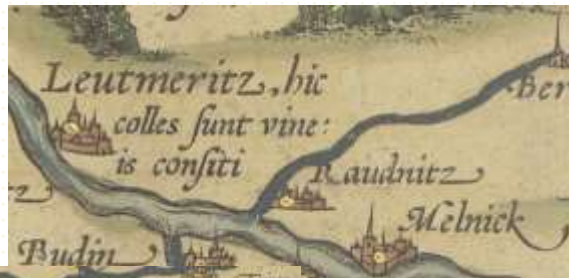 Leutmeritz, hic
colles sunt vine:
is consiti
Ber
Raudnitz
Melnick
tz
Budin